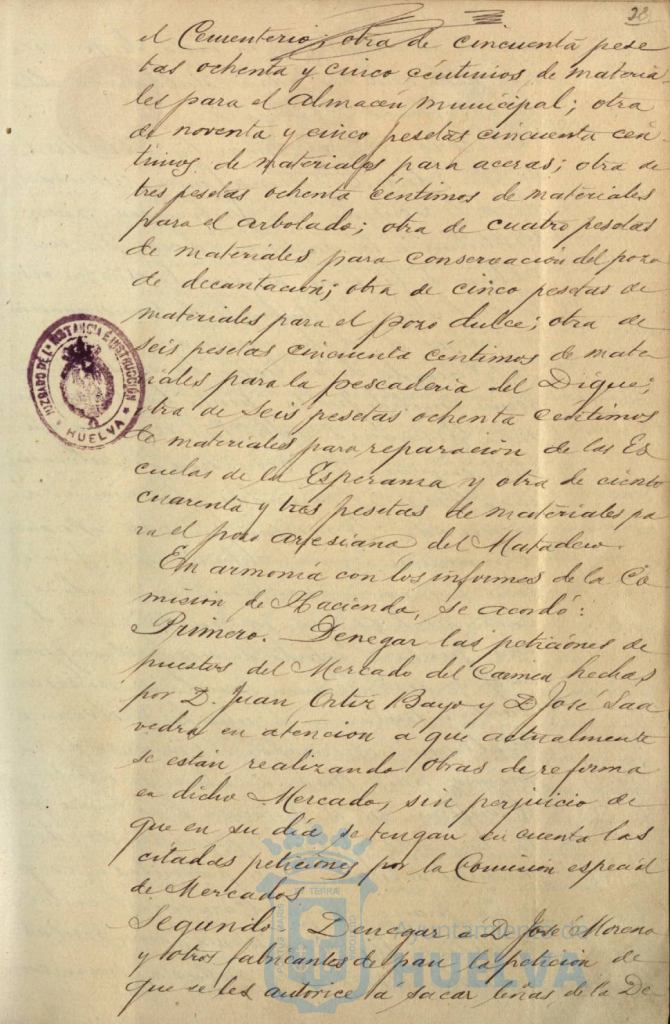 38
el Cementerio; otra de cincuenta pese
tas ochenta y cinco céntimos de materia
les para el almacén municipal; otra
de noventa y cinco pesetas cincuenta cén-
timos de materiales para aceras; otra de
tres pesetas ochenta céntimos de materiales
para el arbolado; otra de cuatro pesetas
de materiales para conservación del pozo
de decantación; otra de cinco pesetas de
materiales para el pozo dulce; otra de
seis pesetas cincuenta céntimos de mate
riales para la pescaderia del Dique;
otra de seis pesetas ochenta centimos
de materiales para reparación de las Es
cuelas de la Esperanza y otra de ciento
cuarenta y tres pesetas de materiales pa
ra el pozo artesiano del Matadero.
En armonía con los informes de la Co
misión de Hacienda, se acordó:
Primero. Denegar las peticiones de
puestos del Mercado del Carmen hechas
por D. Juan Ortiz Bayo y D. José Saa
vedra en atención á que actualmente
se están realizando obras de reforma
en dicho Mercado, sin perjuicio de
que en su día se tengan en cuenta las
citadas peticiones por la Comisión especial
de Mercados
Segundo. Denegar a D. José Moreno
y otros fabricantes de pan la petición de
que se les autorice a sacar leñas de la De
JUZGADO DE 1ª INSTANCIA E INSTRUCCIÓN
* HUELVA *
Ayuntamiento de
HUELVA